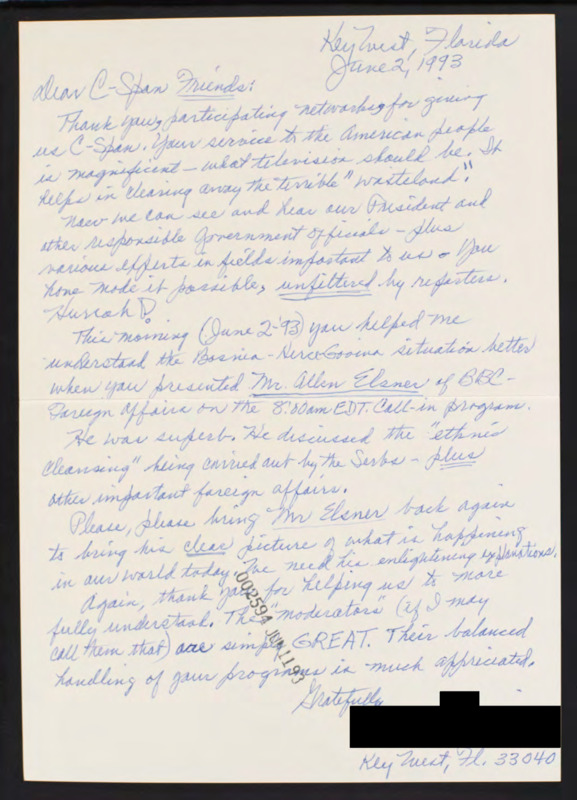 Key West, Florida
June 2, 1993
Dear C-Span Friends:
Thank you, participating networks, for giving
us C-Span. Your service to the American people
is magnificent - what television should be. It
helps in clearing away the terrible "wasteland".
Now we can see and hear our President and
other responsible Government officials - plus
various experts in fields important to us - You
have made it possible, unfiltered by reporters.
Hurrah!
This morning (June 2-'93) you helped me
understand the Bosnia-Herce-Govina situation better
when you presented Mr. Allen Elsner of BBC-
Foreign Affairs on the 8:00am EDT. Call-in program.
He was superb. He discussed the "ethnic
cleansing" being carried out by the Serbs - plus
other important foreign affairs.
Please, please bring Mr Elsner back again
to bring his clear picture of what is happening
in our world today. We need his enlightening explanations.
Again, thank you for helping us to more
fully understand. The "moderators" (if I may
call them that) are simply GREAT. Their balanced
handling of your programs is much appreciated.
002594 JUN 11 93
Gratefully
Key West, Fl. 33040